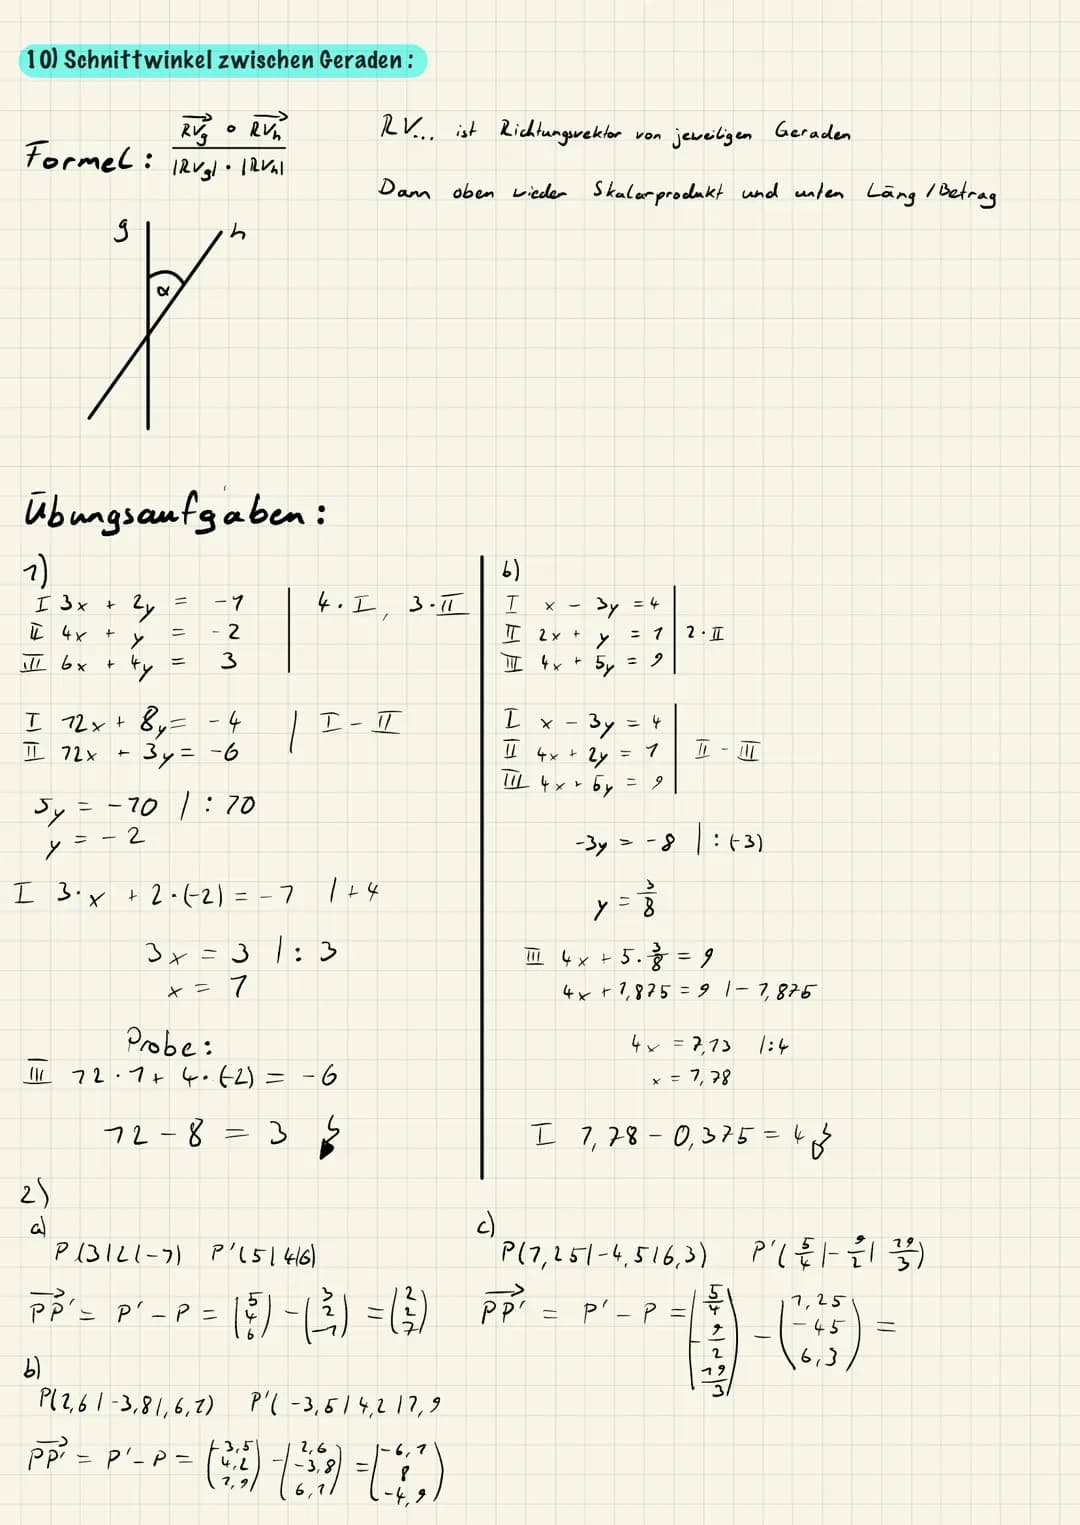 10) Schnittwinkel zwischen Geraden:
Formel: RVg ∘ RVh / |RVg| · |RVh|
RV... ist Richtungsvektor von jeweiligen Geraden
Dann oben wieder Skalarprodukt und unten Läng / Betrag
g h
α
Übungsaufgaben:
1)
I 3x + 2y = -1 | 4·I, 3·II
II 4x + y = -2
III 6x + 4y = 3
I 12x + 8y = -4 | I - II
II 12x + 3y = -6
5y = -10 | : 10
y = -2
I 3·x + 2·(-2) = -1 | +4
3x = 3 | : 3
x = 1
Probe:
III 12·1 + 4·(-2) = -6
12 - 8 = 3 ↯
b)
I x - 3y = 4
II 2x + y = 1 | 2·II
III 4x + 5y = 9
I x - 3y = 4
II 4x + 2y = 1 | II - III
III 4x + 5y = 9
-3y = -8 | : (-3)
y = 3/8
III 4x + 5·3/8 = 9
4x + 1,875 = 9 | - 1,875
4x = 7,13 | :4
x = 1,78
I 1,78 - 0,375 = 4 ↯
2)
a)
P(3|2|-1) P'(5|4|6)
PP' = P' - P = (5 4 6) - (3 2 -1) = (2 2 7)
b)
P(2,6|-3,8|,6,1) P'(-3,5|4,2|1,9
PP' = P' - P = (-3,5 4,2 1,9) - (2,6 -3,8 6,1) = (-6,1 8 -4,9)
c)
P(1,25|-4,5|6,3) P'(5/4|-9/2|19/3)
PP' = P' - P = (5/4 -9/2 19/3) - (1,25 -45 6,3) =